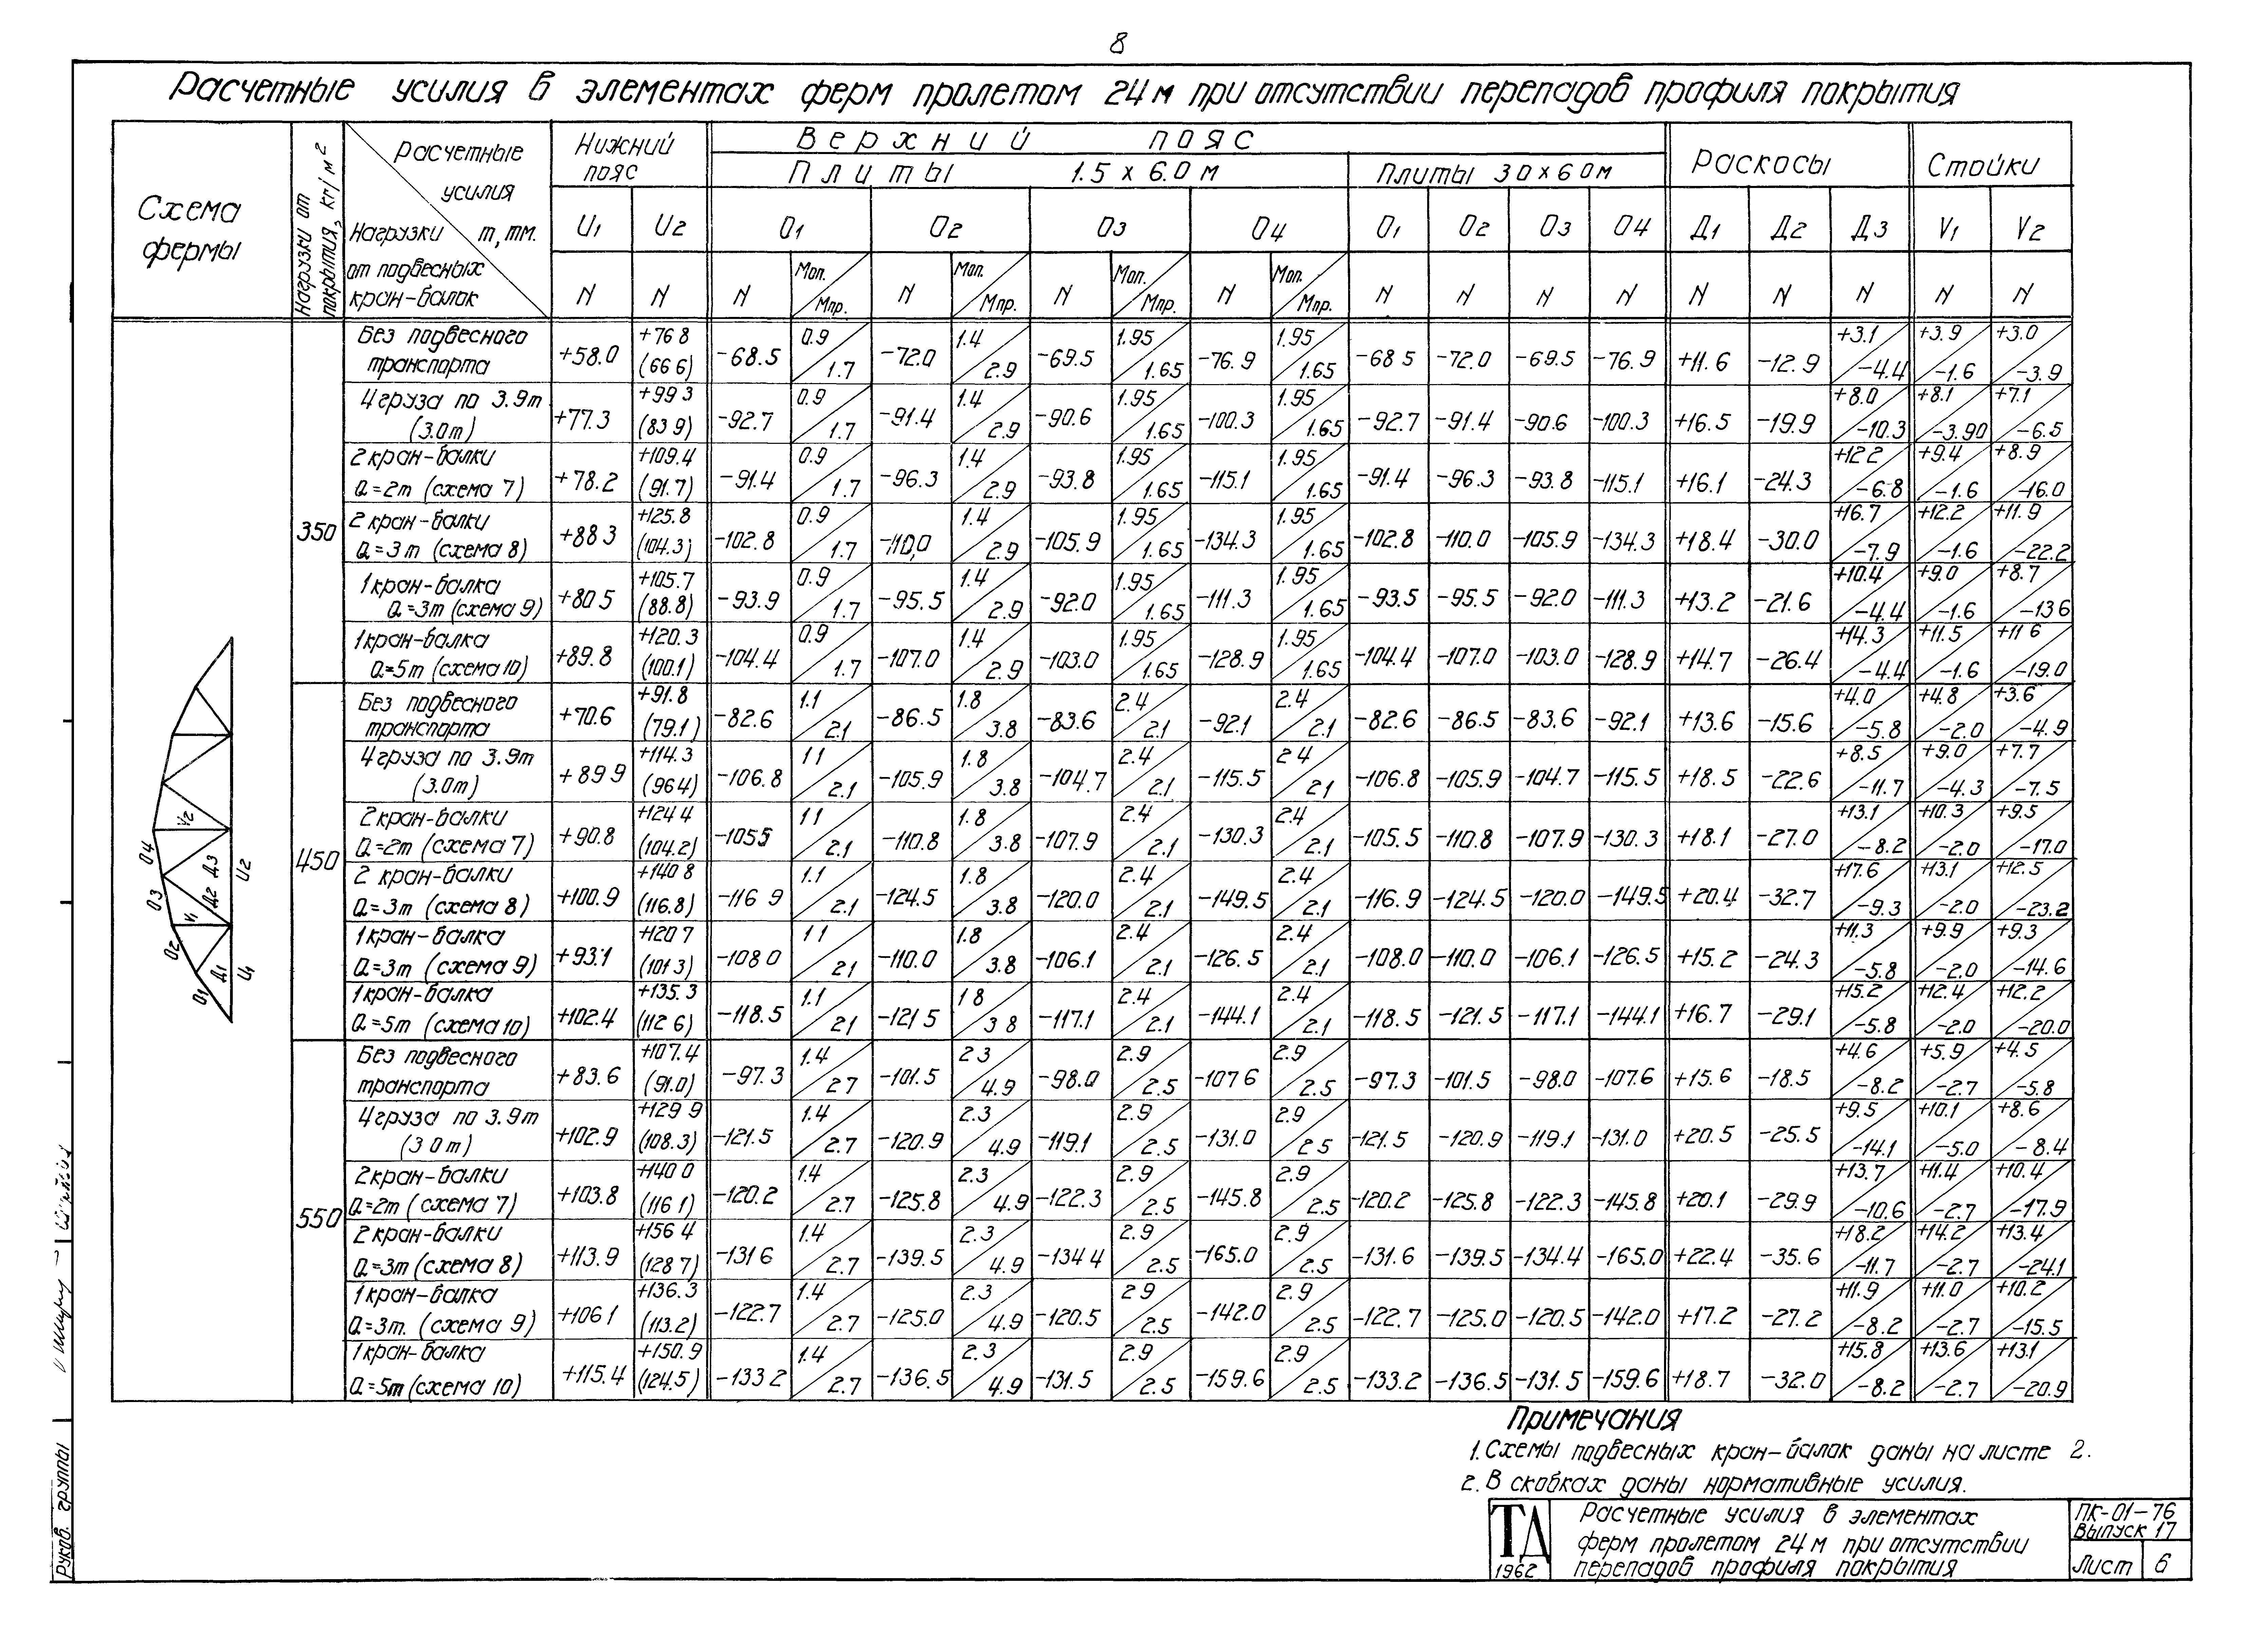 8
Расчетные усилия в элементах ферм пролетом 24 м при отсутствии перепадов профиля покрытия
Схема фермы
Нагрузки от покрытия, кг/м²
Расчетные усилия т, тм.
Нагрузки от подвесных кран-балок
Нижний пояс
Верхний пояс
Раскосы
Стойки
Плиты 1.5 х 6.0 м
Плиты 3.0 х 6.0 м
U1 U2 O1 O2 O3 O4 O1 O2 O3 O4 Д1 Д2 Д3 V1 V2
N N N Моп./Мпр. N Моп./Мпр. N Моп./Мпр. N Моп./Мпр. N N N N N N N N N
350
Без подвесного транспорта +58.0 +76.8 (66.6) -68.5 0.9/1.7 -72.0 1.4/2.9 -69.5 1.95/1.65 -76.9 1.95/1.65 -68.5 -72.0 -69.5 -76.9 +11.6 -12.9 +3.1/-4.4 +3.9/-1.6 +3.0/-3.9
4 груза по 3.9т (3.0т) +77.3 +99.3 (83.9) -92.7 0.9/1.7 -91.4 1.4/2.9 -90.6 1.95/1.65 -100.3 1.95/1.65 -92.7 -91.4 -90.6 -100.3 +16.5 -19.9 +8.0/-10.3 +8.1/-3.90 +7.1/-6.5
2 кран-балки Q=2т (схема 7) +78.2 +109.4 (91.7) -91.4 0.9/1.7 -96.3 1.4/2.9 -93.8 1.95/1.65 -115.1 1.95/1.65 -91.4 -96.3 -93.8 -115.1 +16.1 -24.3 +12.2/-6.8 +9.4/-1.6 +8.9/-16.0
2 кран-балки Q=3т (схема 8) +88.3 +125.8 (104.3) -102.8 0.9/1.7 -110,0 1.4/2.9 -105.9 1.95/1.65 -134.3 1.95/1.65 -102.8 -110.0 -105.9 -134.3 +18.4 -30.0 +16.7/-7.9 +12.2/-1.6 +11.9/-22.2
1 кран-балка Q=3т (схема 9) +80.5 +105.7 (88.8) -93.9 0.9/1.7 -95.5 1.4/2.9 -92.0 1.95/1.65 -111.3 1.95/1.65 -93.5 -95.5 -92.0 -111.3 +13.2 -21.6 +10.4/-4.4 +9.0/-1.6 +8.7/-13.6
1 кран-балка Q=5т (схема 10) +89.8 +120.3 (100.1) -104.4 0.9/1.7 -107.0 1.4/2.9 -103.0 1.95/1.65 -128.9 1.95/1.65 -104.4 -107.0 -103.0 -128.9 +14.7 -26.4 +14.3/-4.4 +11.5/-1.6 +11.6/-19.0
450
Без подвесного транспорта +70.6 +91.8 (79.1) -82.6 1.1/2.1 -86.5 1.8/3.8 -83.6 2.4/2.1 -92.1 2.4/2.1 -82.6 -86.5 -83.6 -92.1 +13.6 -15.6 +4.0/-5.8 +4.8/-2.0 +3.6/-4.9
4 груза по 3.9т (3.0т) +89.9 +114.3 (96.4) -106.8 1.1/2.1 -105.9 1.8/3.8 -104.7 2.4/2.1 -115.5 2.4/2.1 -106.8 -105.9 -104.7 -115.5 +18.5 -22.6 +8.5/-11.7 +9.0/-4.3 +7.7/-7.5
2 кран-балки Q=2т (схема 7) +90.8 +124.4 (104.2) -105.5 1.1/2.1 -110.8 1.8/3.8 -107.9 2.4/2.1 -130.3 2.4/2.1 -105.5 -110.8 -107.9 -130.3 +18.1 -27.0 +13.1/-8.2 +10.3/-2.0 +9.5/-17.0
2 кран-балки Q=3т (схема 8) +100.9 +140.8 (116.8) -116.9 1.1/2.1 -124.5 1.8/3.8 -120.0 2.4/2.1 -149.5 2.4/2.1 -116.9 -124.5 -120.0 -149.5 +20.4 -32.7 +17.6/-9.3 +13.1/-2.0 +12.5/-23.2
1 кран-балка Q=3т (схема 9) +93.1 +120.7 (101.3) -108.0 1.1/2.1 -110.0 1.8/3.8 -106.1 2.4/2.1 -126.5 2.4/2.1 -108.0 -110.0 -106.1 -126.5 +15.2 -24.3 +11.3/-5.8 +9.9/-2.0 +9.3/-14.6
1 кран-балка Q=5т (схема 10) +102.4 +135.3 (112.6) -118.5 1.1/2.1 -121.5 1.8/3.8 -117.1 2.4/2.1 -144.1 2.4/2.1 -118.5 -121.5 -117.1 -144.1 +16.7 -29.1 +15.2/-5.8 +12.4/-2.0 +12.2/-20.0
550
Без подвесного транспорта +83.6 +107.4 (91.0) -97.3 1.4/2.7 -101.5 2.3/4.9 -98.0 2.9/2.5 -107.6 2.9/2.5 -97.3 -101.5 -98.0 -107.6 +15.6 -18.5 +4.6/-8.2 +5.9/-2.7 +4.5/-5.8
4 груза по 3.9т (3.0т) +102.9 +129.9 (108.3) -121.5 1.4/2.7 -120.9 2.3/4.9 -119.1 2.9/2.5 -131.0 2.9/2.5 -121.5 -120.9 -119.1 -131.0 +20.5 -25.5 +9.5/-14.1 +10.1/-5.0 +8.6/-8.4
2 кран-балки Q=2т (схема 7) +103.8 +140.0 (116.1) -120.2 1.4/2.7 -125.8 2.3/4.9 -122.3 2.9/2.5 -145.8 2.9/2.5 -120.2 -125.8 -122.3 -145.8 +20.1 -29.9 +13.7/-10.6 +11.4/-2.7 +10.4/-17.9
2 кран-балки Q=3т (схема 8) +113.9 +156.4 (128.7) -131.6 1.4/2.7 -139.5 2.3/4.9 -134.4 2.9/2.5 -165.0 2.9/2.5 -131.6 -139.5 -134.4 -165.0 +22.4 -35.6 +18.2/-11.7 +14.2/-2.7 +13.4/-24.1
1 кран-балка Q=3т. (схема 9) +106.1 +136.3 (113.2) -122.7 1.4/2.7 -125.0 2.3/4.9 -120.5 2.9/2.5 -142.0 2.9/2.5 -122.7 -125.0 -120.5 -142.0 +17.2 -27.2 +11.9/-8.2 +11.0/-2.7 +10.2/-15.5
1 кран-балка Q=5т (схема 10) +115.4 +150.9 (124.5) -133.2 1.4/2.7 -136.5 2.3/4.9 -131.5 2.9/2.5 -159.6 2.9/2.5 -133.2 -136.5 -131.5 -159.6 +18.7 -32.0 +15.8/-8.2 +13.6/-2.7 +13.1/-20.9
O1 O2 O3 O4 Д1 V1 Д2 Д3 V2 U1 U2
Примечания
1. Схемы подвесных кран-балок даны на листе 2.
2. В скобках даны нормативные усилия.
ТД
1962
Расчетные усилия в элементах
ферм пролетом 24 м при отсутствии
перепадов профиля покрытия
ПК-01-76
Выпуск 17
Лист 6
Руков. группы